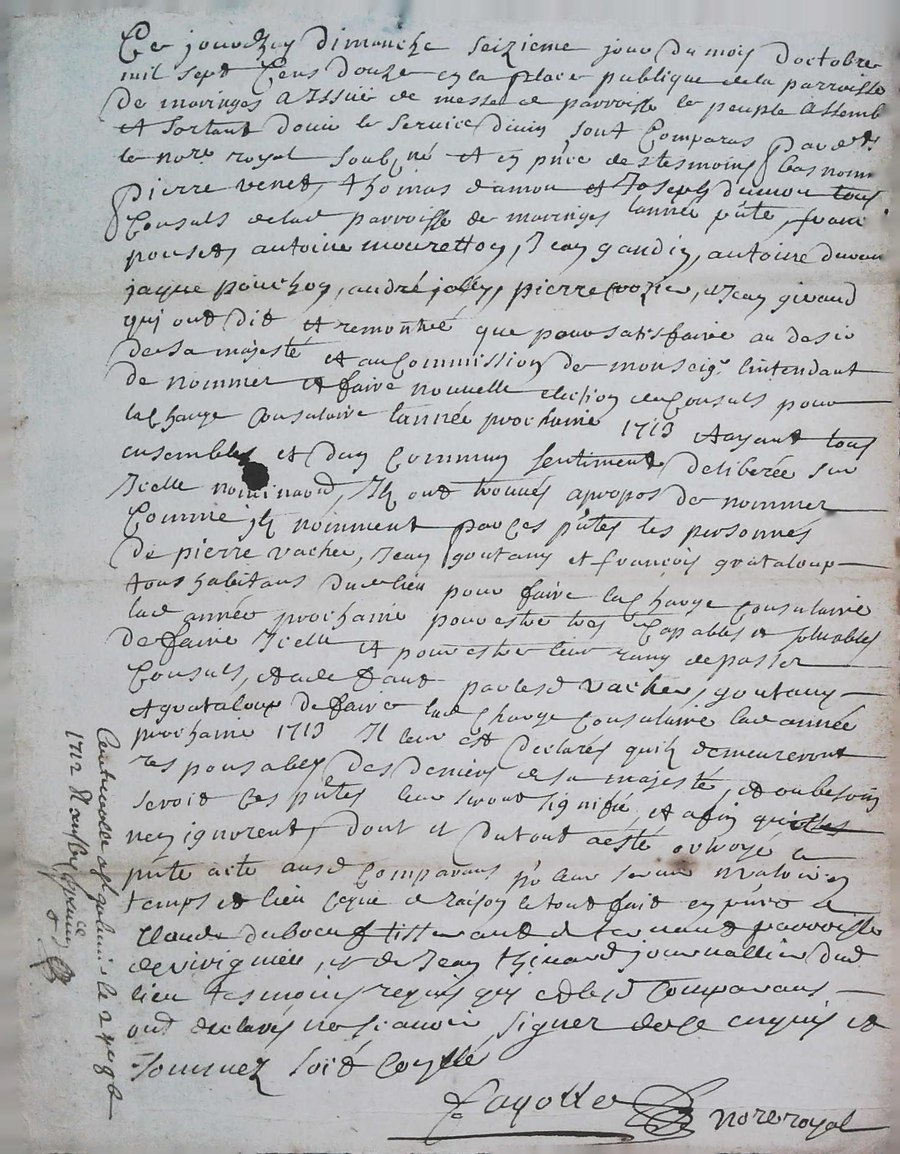 Ce jourdhuy dimanche seizieme jour du mois doctobre
mil sept Cens douze en la place publique de la parroisse
De maringes a Issüe de messe de parroisse le peuple assemb
et sortant douir le service divin sont Comparus pardt
le nore royal soubne et en pnce des tesmoins bas nomm
pierre venet, thomas damon et Joseph dumon tous
Consuls de lad parroisse de maringes lannée pnte, fran
pouset, antoine mouretton, Jean gandin, antoine
jaque ponchon, andré jolly, pierre crozier, et Jean giraud
qui ont dit et remontré que pour satisfaire au desir
de sa majesté et au Commission de monseigr lintendant
de nommer et faire nouvelle election de Consuls pour
la Charge Consulaire lannée prochaine 1713 et ayant tous
ensembles et dun Commun sentiment deliberée sur
Icelle Ils ont trouvés apropos de nommer
Comme ils nomment par Ces pntes les personnes
De pierre vacher, Jean goutany et françois grataloup
tous habitans dud lieu pour faire la Charge Consulaire
lad année prochaine pour estre tres Capables et soluables
de faire Icelle et pour estre leur rang de passer
Consuls, et a deffaut par lesd vacher, goutany
et grataloup de faire lad Charge Consulaire lad année
prochaine 1713 Il leur est declarés quils demeureront
responsables des deniers de sa majesté, et ou besoin
seroit Ces pntes leur seront signifié, et afin quils
nen ignorent, dont et du tout a esté octroyé le
pnte acte ausd Comparans pr leur servir et valoir en
temps et lieu Ceque de raizon le tout fait en pnce de
Claude duboeuf tisserand de parroisse
de virigneu, et de Jean thinard journallier dud
lieu tesmoins requis qui et lesd Comparans
ont declarés ne scavoir signer de Ce enquis et
sommez soit Conllé
Fayolle nore royal
Controllé a st galmier le 2e 9bre
1712